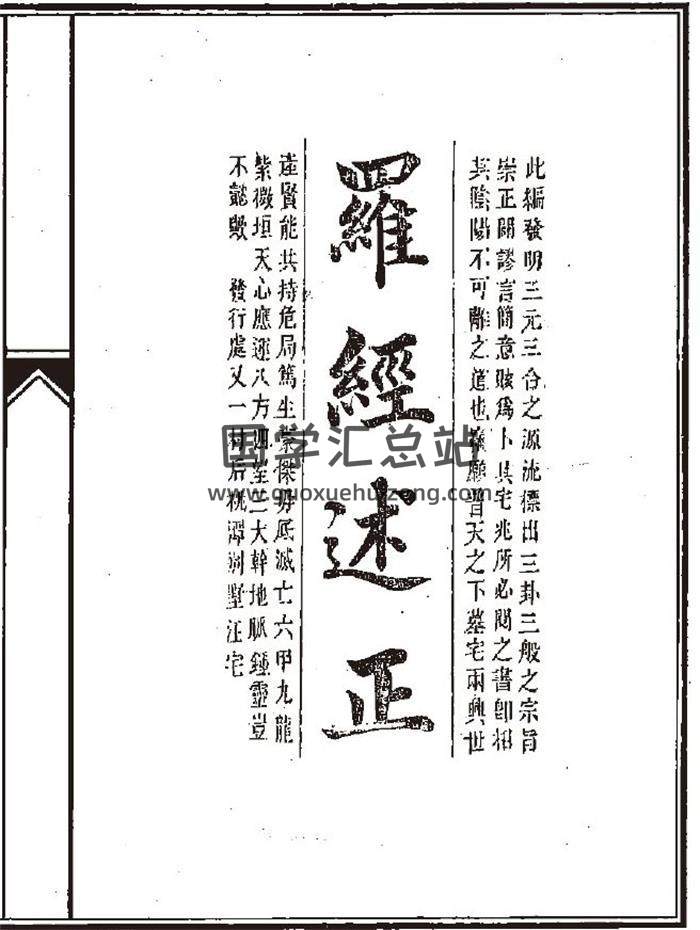 此編發明三元三合之源流標出三卦三般之宗旨
崇正闢謬言簡意賅為卜其宅兆所必閱之書即相
其陰陽不可離之道也 願普天之下墓宅兩興世
羅經述正
遠賢能共持危局篤生 傑毋底滅亡六甲九龍
紫微垣天心應運八方 三大幹地脈鍾靈豈
不懿歟 發行處又一村后桃潭別墅汪宅
国学汇总站
www.guoxuehuizong.com